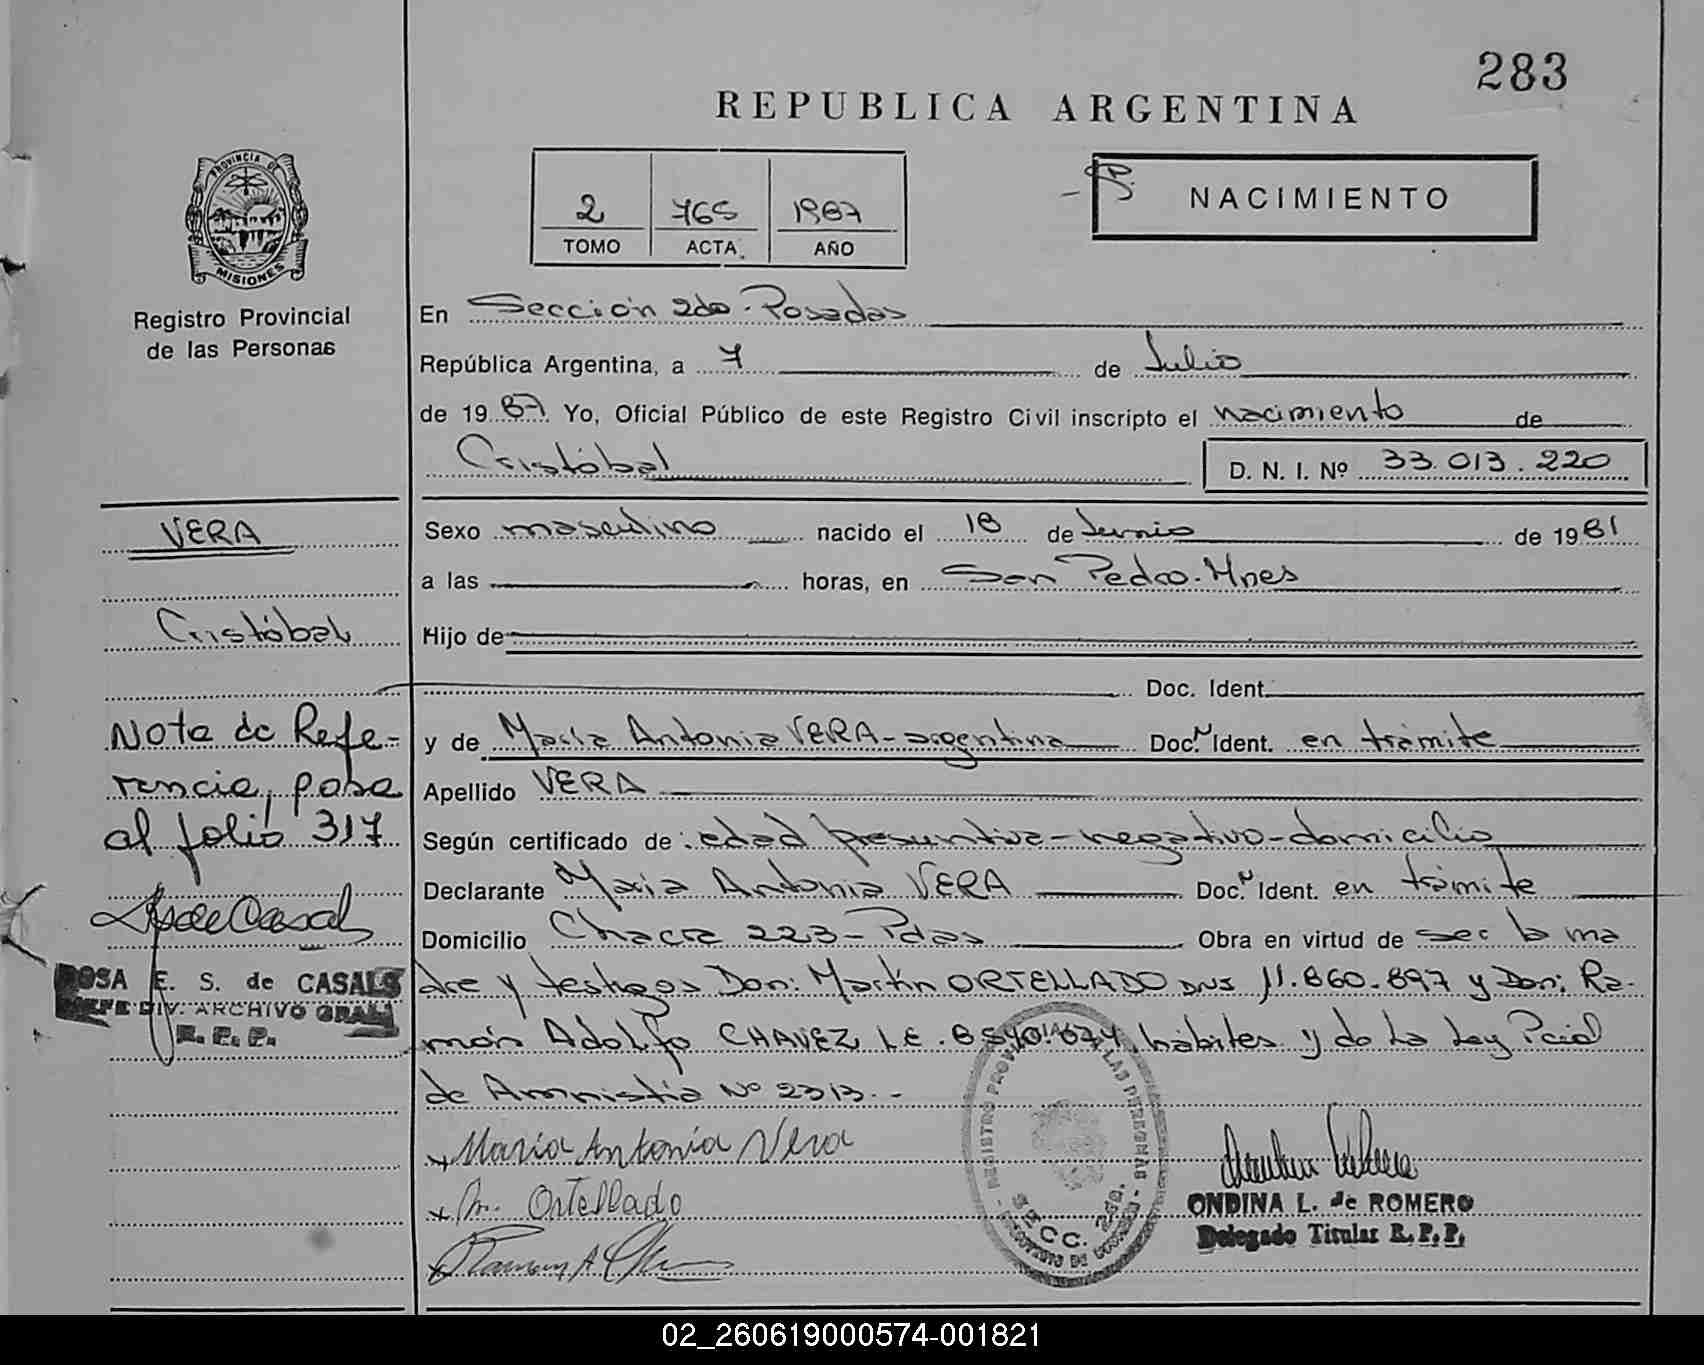 283
REPUBLICA ARGENTINA
PROVINCIA DE
MISIONES
Registro Provincial
de las Personas
2 765 1987
TOMO ACTA AÑO
NACIMIENTO
En Sección 2da - Posadas
República Argentina, a 7 de Julio
de 1987 Yo, Oficial Público de este Registro Civil inscripto el nacimiento de
Cristóbal D. N. I. Nº 33.013.220
VERA
Sexo masculino nacido el 18 de Junio de 1981
a las horas, en San Pedro - Mnes
Cristóbal
Hijo de
Doc. Ident.
Nota de Refe-
rencia, pasa
al folio 317
y de María Antonia VERA - argentina Doc. Ident. en trámite
Apellido VERA
Según certificado de: edad presuntiva - negativo - domicilio
Declarante María Antonia VERA Doc. Ident. en trámite
Domicilio Chacra 223 - Pdas Obra en virtud de ser la ma
dre y testigos Don: Martín ORTELLADO DNI 11.860.897 y Don: Ra-
món Adolfo CHAVEZ L.E. hábiles y de la Ley Pcial
de Amnistía Nº 2313.-
ROSA E. S. de CASALS
JEFE DIV. ARCHIVO GRAL
R. P. P.
María Antonia Vera
M. Ortellado
Ramon A
REGISTRO PROV. DE LAS PERSONAS
SECC. 2da.
ONDINA L. de ROMERO
Delegado Titular R.P.P.
02_260619000574-001821